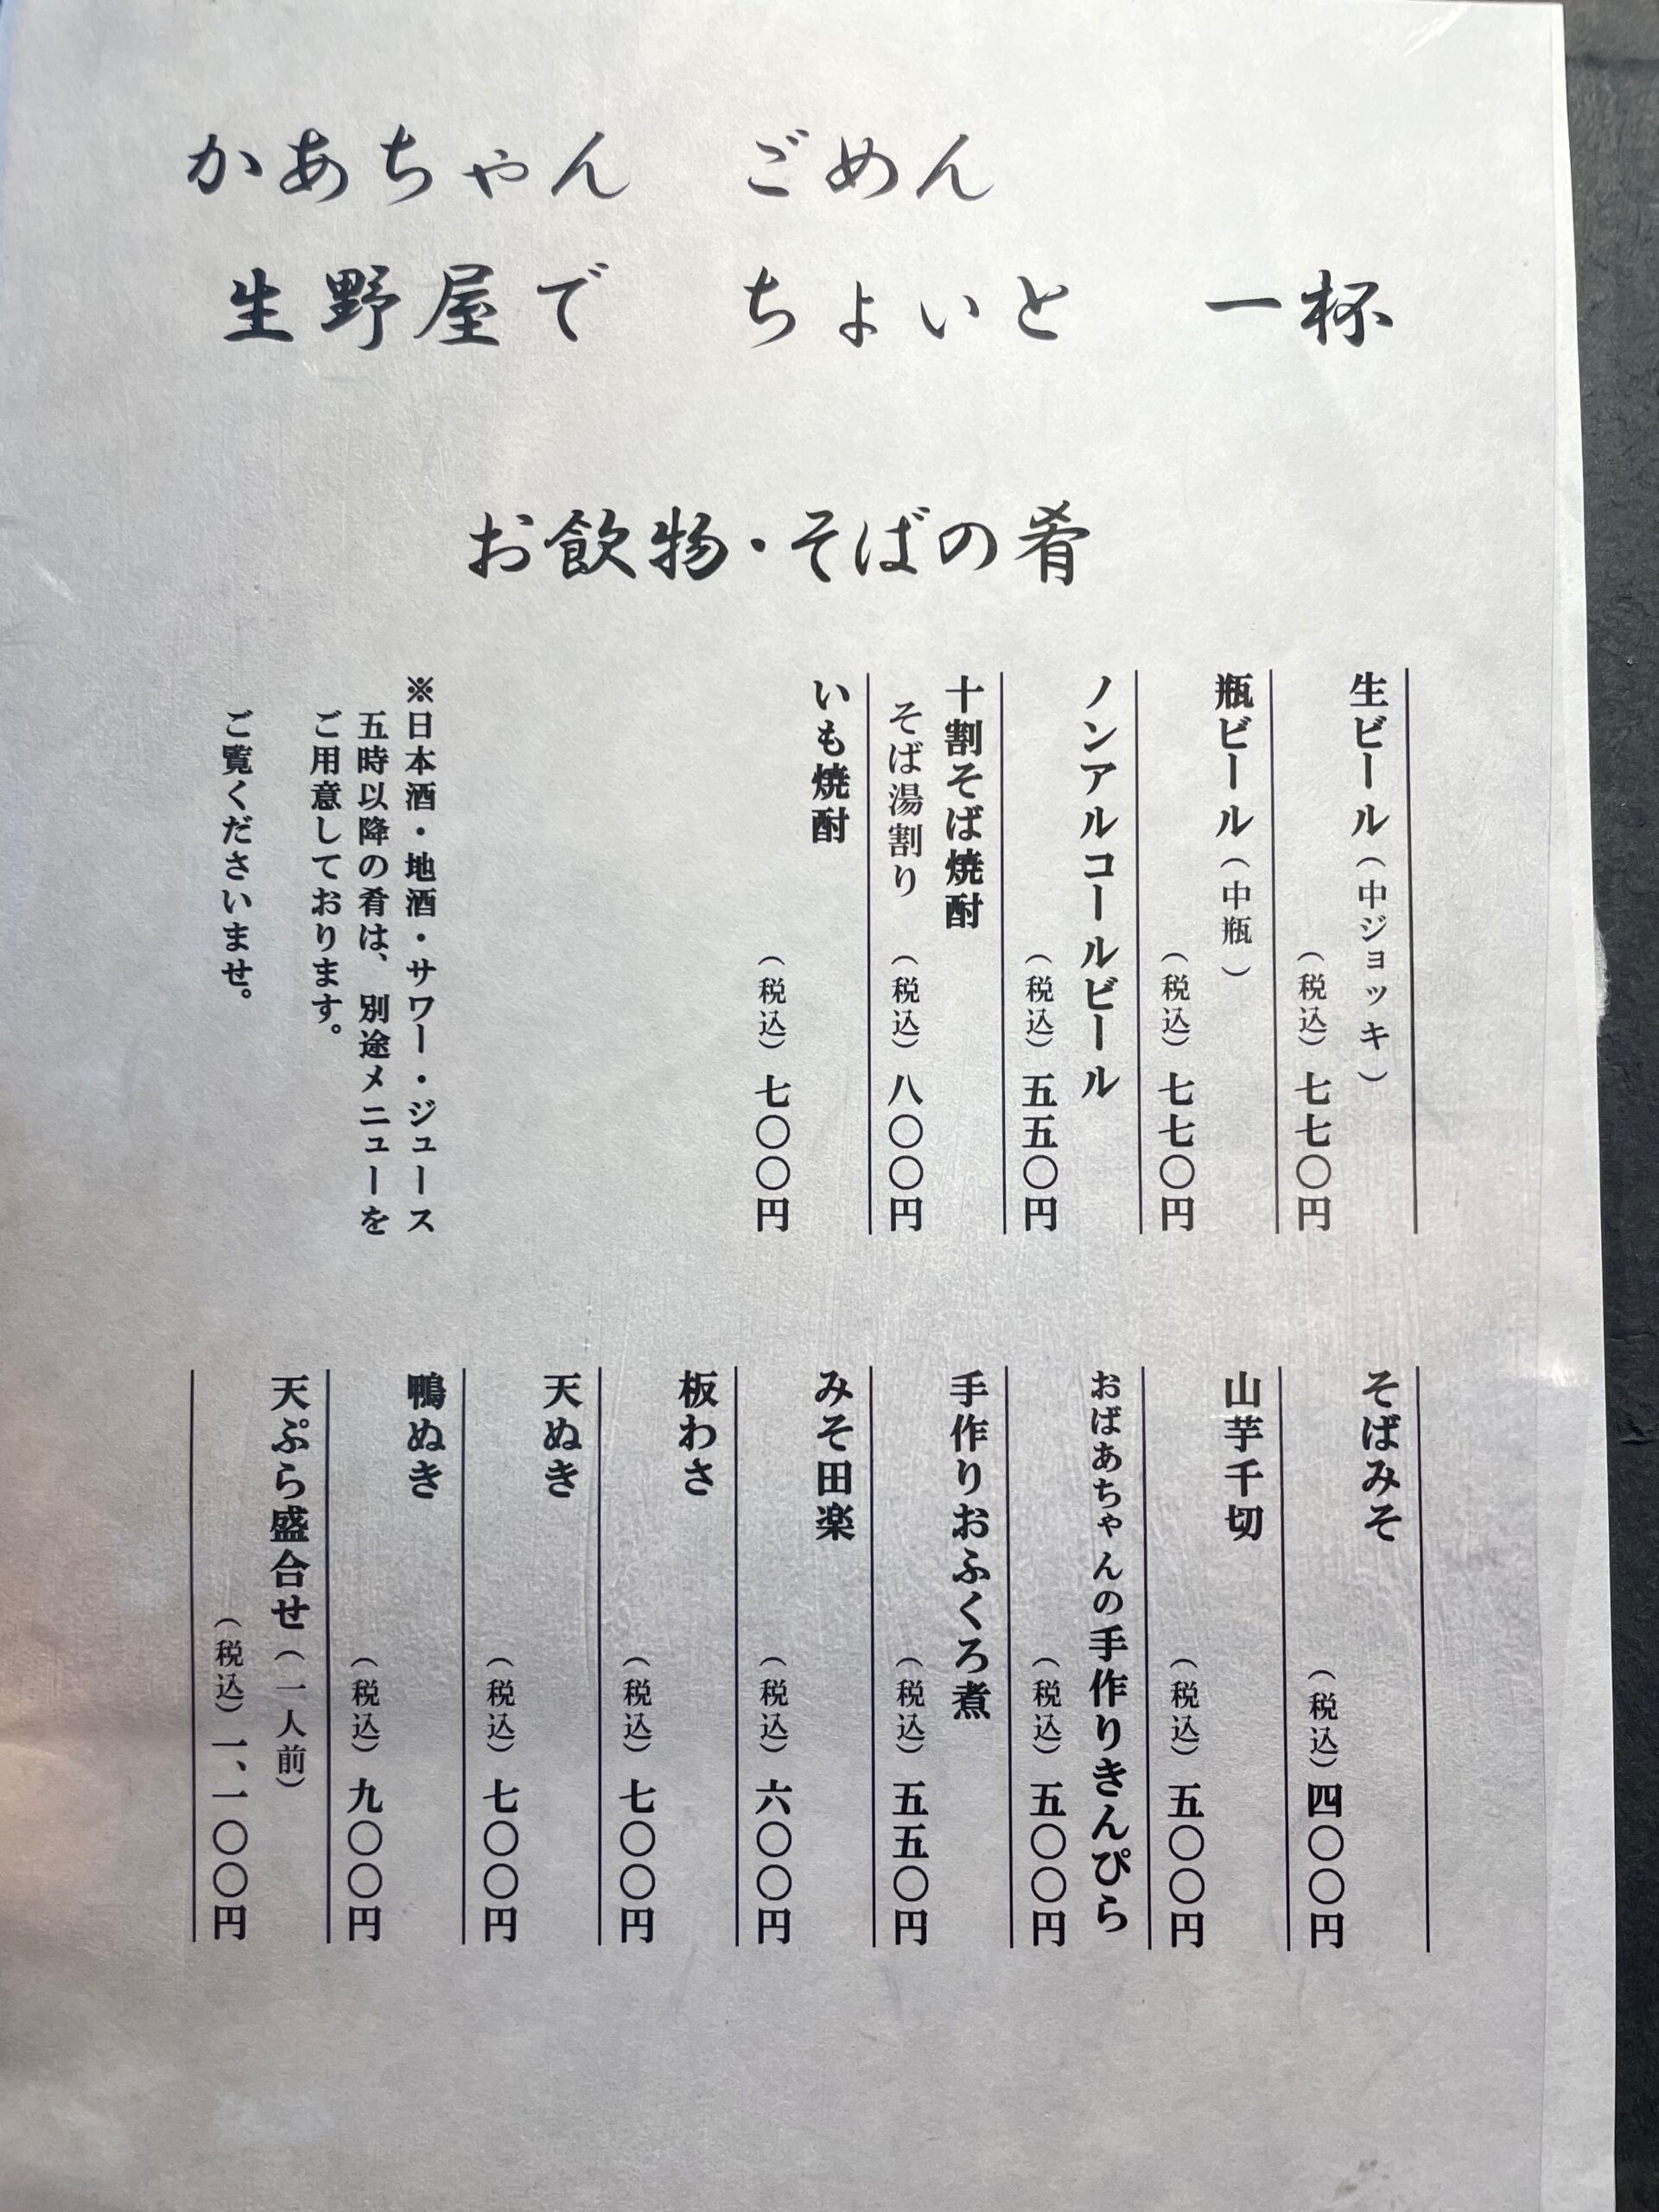 かあちゃん　ごめん
生野屋で　ちょいと　一杯
お飲物・そばの肴
生ビール（中ジョッキ）
（税込）七七〇円
瓶ビール（中瓶）
（税込）七七〇円
ノンアルコールビール
（税込）五五〇円
十割そば焼酎
そば湯割り　（税込）八〇〇円
いも焼酎
（税込）七〇〇円
※日本酒・地酒・サワー・ジュース
五時以降の肴は、別途メニューを
ご用意しております。
ご覧くださいませ。
そばみそ
（税込）四〇〇円
山芋千切
（税込）五〇〇円
おばあちゃんの手作りきんぴら
（税込）五〇〇円
手作りおふくろ煮
（税込）五五〇円
みそ田楽
（税込）六〇〇円
板わさ
（税込）七〇〇円
天ぬき
（税込）七〇〇円
鴨ぬき
（税込）九〇〇円
天ぷら盛合せ（一人前）
（税込）一、一〇〇円